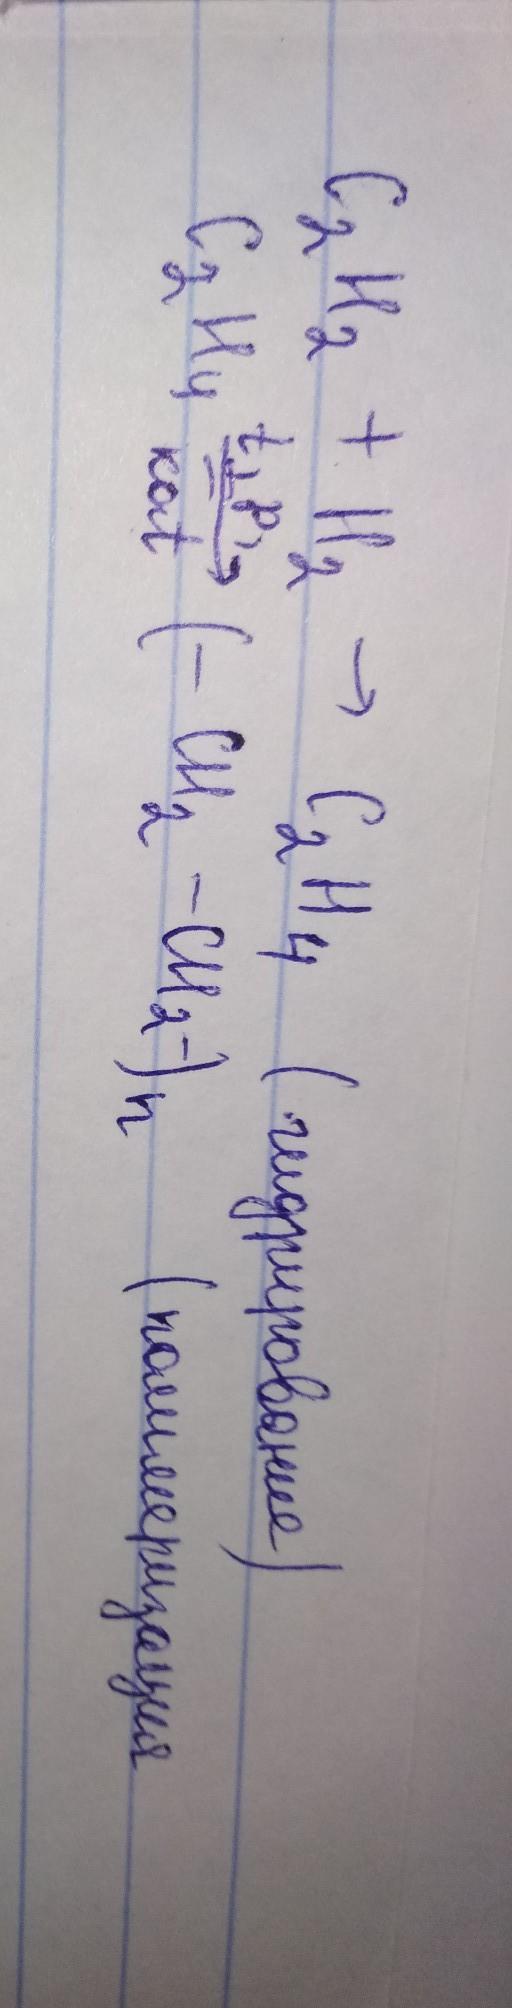 C₂H₂ + H₂ → C₂H₄ (гидрирование)
C₂H₄ t, p, kat → (– CH₂ – CH₂ –)n (полимеризация